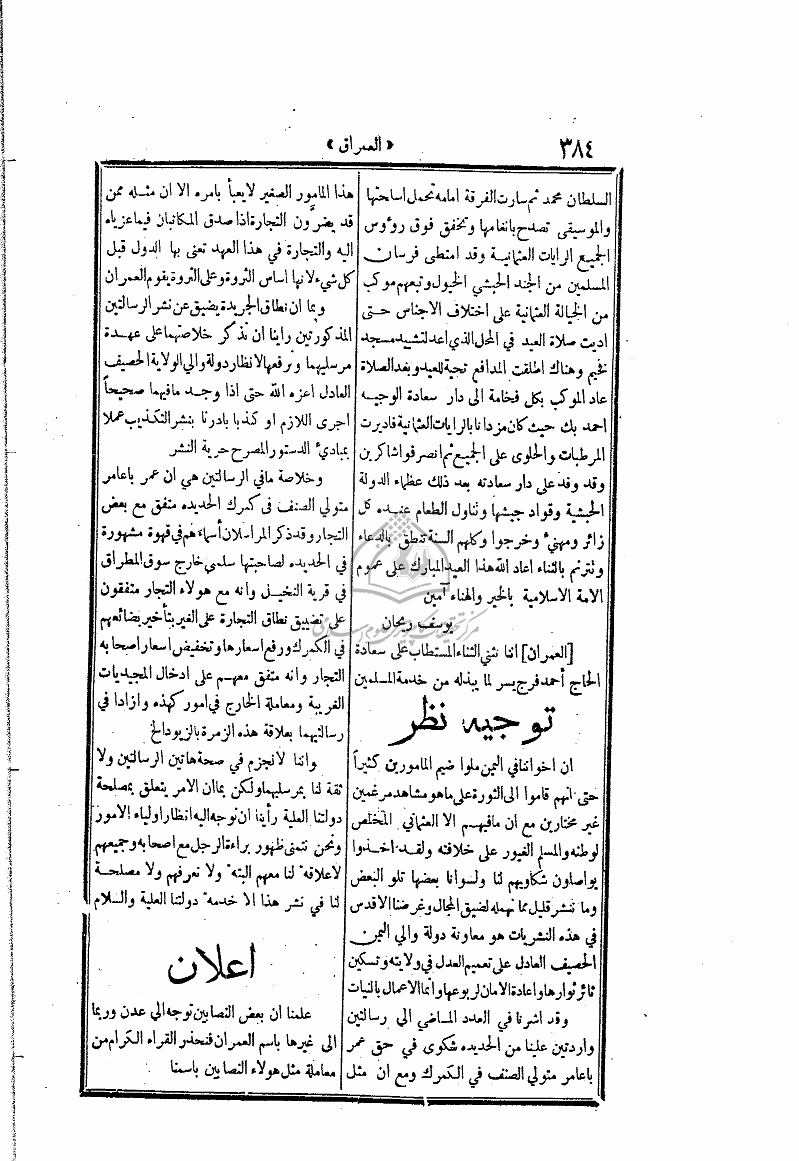 ٣٨٤
« العمران »
السلطان محمد ثم سارت الفرقة امامه تحمل اسلحتها
والموسيقى تصدح بانغامها وتخفق فوق رؤوس
الجميع الرايات العثمانية وقد امتطى فرسان
المسلمين من الجند الحبشي الخيول وتبعهم موكب
من الخيالة العثمانية على اختلاف الاجناس حتى
اديت صلاة العيد في المحل الذي اعد لتشييد مسجد
فخيم وهناك اطلقت المدافع تحية للعيد وبعد الصلاة
عاد الموكب بكل فخامة الى دار سعادة الوجيه
احمد بك حيث كان مزدانا بالرايات العثمانية فاديرت
المرطبات والحلوى على الجميع ثم انصرفوا شاكرين
وقد وفد على دار سعادته بعد ذلك عظماء الدولة
الحبشية وقواد جيشها وتناول الطعام عنده كل
زائر ومهنيء وخرجوا وكلهم السنة تنطق بالدعاء
وتترنم بالثناء اعاد الله هذا العيد المبارك على عموم
الامة الاسلامية بالخير والهناء امين
يوسف ريحان
[العمران] اننا نثني الثناء المستطاب على سعادة
الحاج أحمد فرج يسر لما يبذله من خدمة المسلمين
توجيه نظر
ان اخواننا في اليمن ملوا ضيم المامورين كثيراً
حتى انهم قاموا الى الثورة على ماهو مشاهد مرغمين
غير مختارين مع ان مافيهم الا العثماني المخلص
لوطنه والمسلم الغيور على خلافته ولقد اخذوا
يواصلون شكاويهم لنا ولسوانا بعضها تلو البعض
وما ننشر قليل مما نهمله لضيق المجال وغرضنا الاقدس
في هذه النشريات هو معاونة دولة والي اليمن
الحصيف العادل على تعميم العدل في ولايته وتسكين
ثائر ثوارها واعادة الامان لربوعها وانما الاعمال بالنيات
وقد اشرنا في العدد الماضي الى رسالتين
واردتين علينا من الحديده شكوى في حق عمر
باعامر متولي الصنف في الكمرك ومع ان مثل
هذا المامور الصغير لا يعبأ بامره الا ان مثله ممن
قد يضرّون التجارة اذا صدق المكاتبان فيما عزياه
اليه والتجارة في هذا العهد تعنى بها الدول قبل
كل شيء لانها اساس الثروة وعلى الثروة يقوم العمران
وبما ان نطاق الجريدة يضيق عن نشر الرسالتين
المذكورتين راينا ان نذكر خلاصتهما على عهدة
مرسليهما ونرفعها لانظار دولة والي الولاية الحصيف
العادل اعزه الله حتى اذا وجد مافيهما صحيحاً
اجرى اللازم او كذبا بادرنا بنشر التكذيب عملا
بمباديء الدستور المصرح حرية النشر
وخلاصة مافي الرسالتين هي ان عمر باعامر
متولي الصنف في كمرك الحديده متفق مع بعض
التجار وقد ذكر المراسلان أسماءهم في قهوة مشهورة
في الحديده لصاحبتها سلمى خارج سوق المطراق
في قرية النخيل وانه مع هولاء التجار متفقون
على تضييق نطاق التجارة على الغير بتأخير بضائعهم
في الكمرك ورفع اسعارها وتخفيض اسعار اصحابه
التجار وانه متفق معهم على ادخال المجيديات
الغريبة ومعاملة الخارج في امور كهذه وازادا في
رسالتيهما بعلاقة هذه الزمرة بالزيود الخ
واننا لانجزم في صحة هاتين الرسالتين ولا
ثقة لنا بمرسليهما ولكن بما ان الامر يتعلق بمصلحة
دولتنا العلية رأينا ان نوجه اليه انظار اولياء الامور
ونحن نتمنى ظهور براءة الرجل مع اصحابه وجميعهم
لاعلاقة لنا معهم البتة ولا نعرفهم ولا مصلحة
لنا في نشر هذا الا خدمة دولتنا العلية والسلام
اعلان
علمنا ان بعض النصابين توجه الى عدن وربما
الى غيرها باسم العمران فنحذر القراء الكرام من
معاملة مثل هولاء النصابين باسمنا